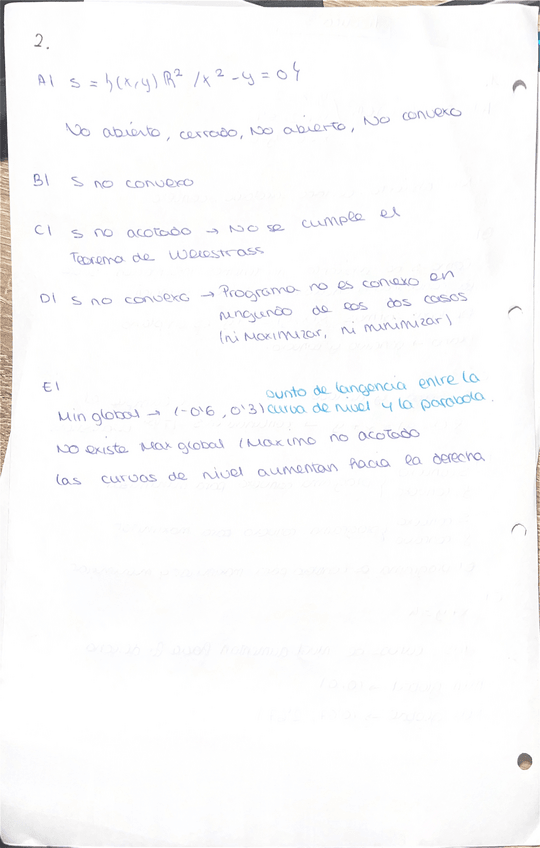 2.
A) S = {(x,y) R² / x² - y = 0}
No abierto, cerrado, No abierto, No convexo
B) S no convexo
C) S no acotado → No se cumple el
Teorema de Weiestrass
D) S no convexo → Programa no es convexo en
ningundo de los dos casos
(ni Maximizar, ni minimizar)
E)
punto de tangencia entre la
Min global → (-0'6, 0'3) curva de nivel y la parabola.
No existe Max global (Maximo no acotado
las curvas de nivel aumentan hacia la derecha